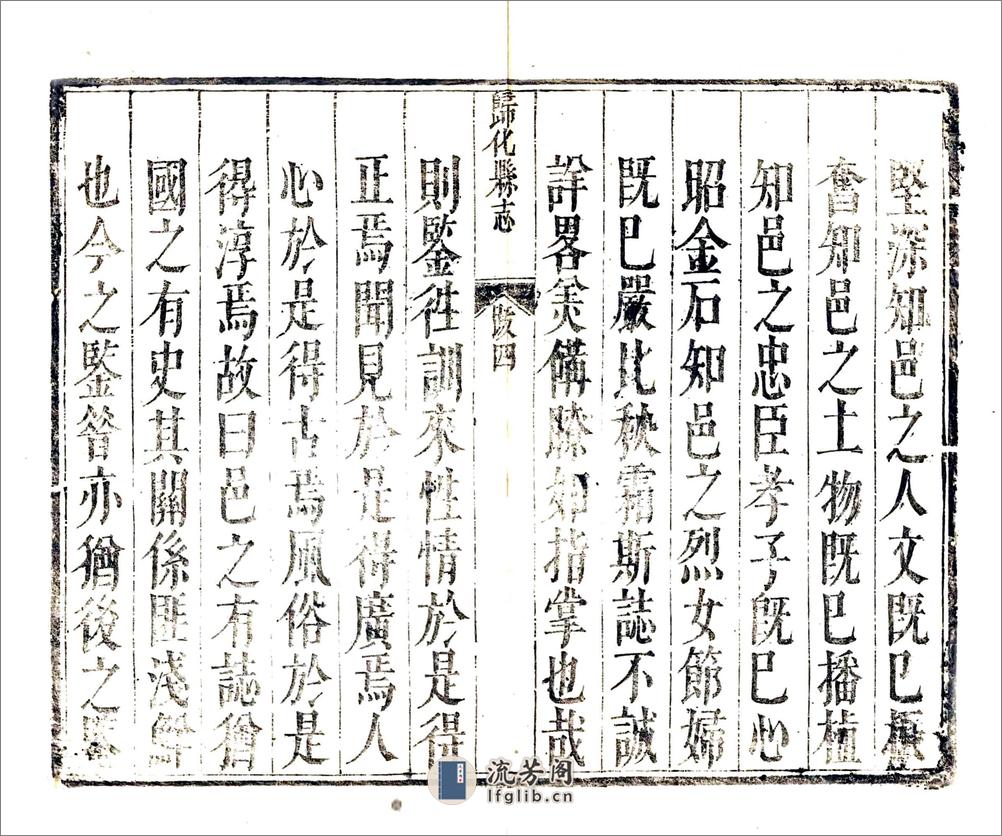 堅深知邑之人文既已極
奮知邑之土物既已播植
知邑之忠臣孝子既已心
昭金石知邑之烈女節婦
既已嚴比秋霜斯誌不誠
詳畧矣備瞭如指掌也哉
歸化縣志
跋四
則鍳徃訓來性情於是得
正焉聞見於是得廣焉人
心於是得古焉風俗於是
得淳焉故曰邑之有誌猶
國之有史其關係匪淺鮮
也今之鍳昔亦猶後之鍳
流芳阁
lfglib.cn